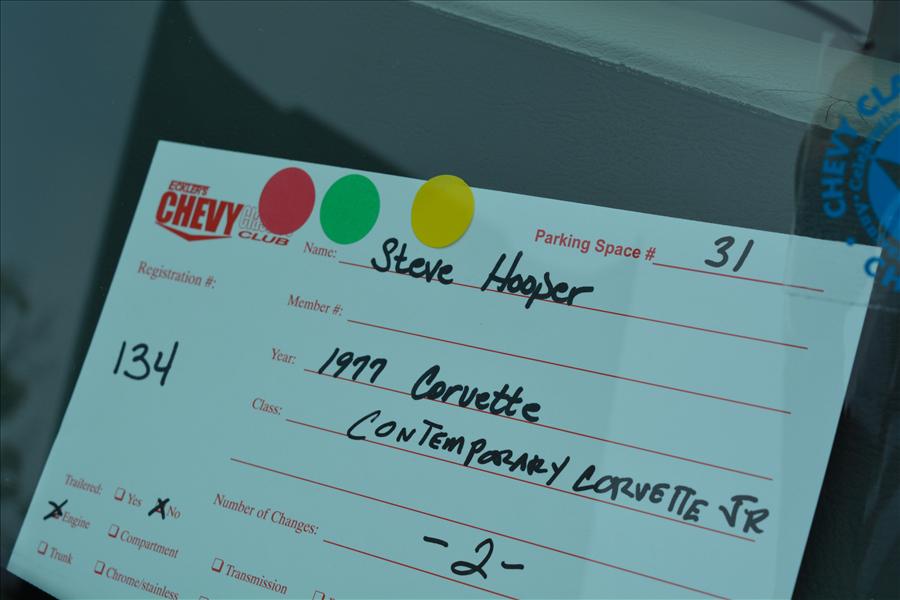 ECKLER'S
CHEVY
CLUB
Parking Space # 31
Name: Steve Hooper
Registration #:
Member #:
134
Year: 1977 Corvette
Class: CONTEMPORARY CORVETTE JR
Number of Changes: -2-
Trailered: Yes No
Engine Compartment
Trunk Chrome/stainless Transmission
CHEVY CLA